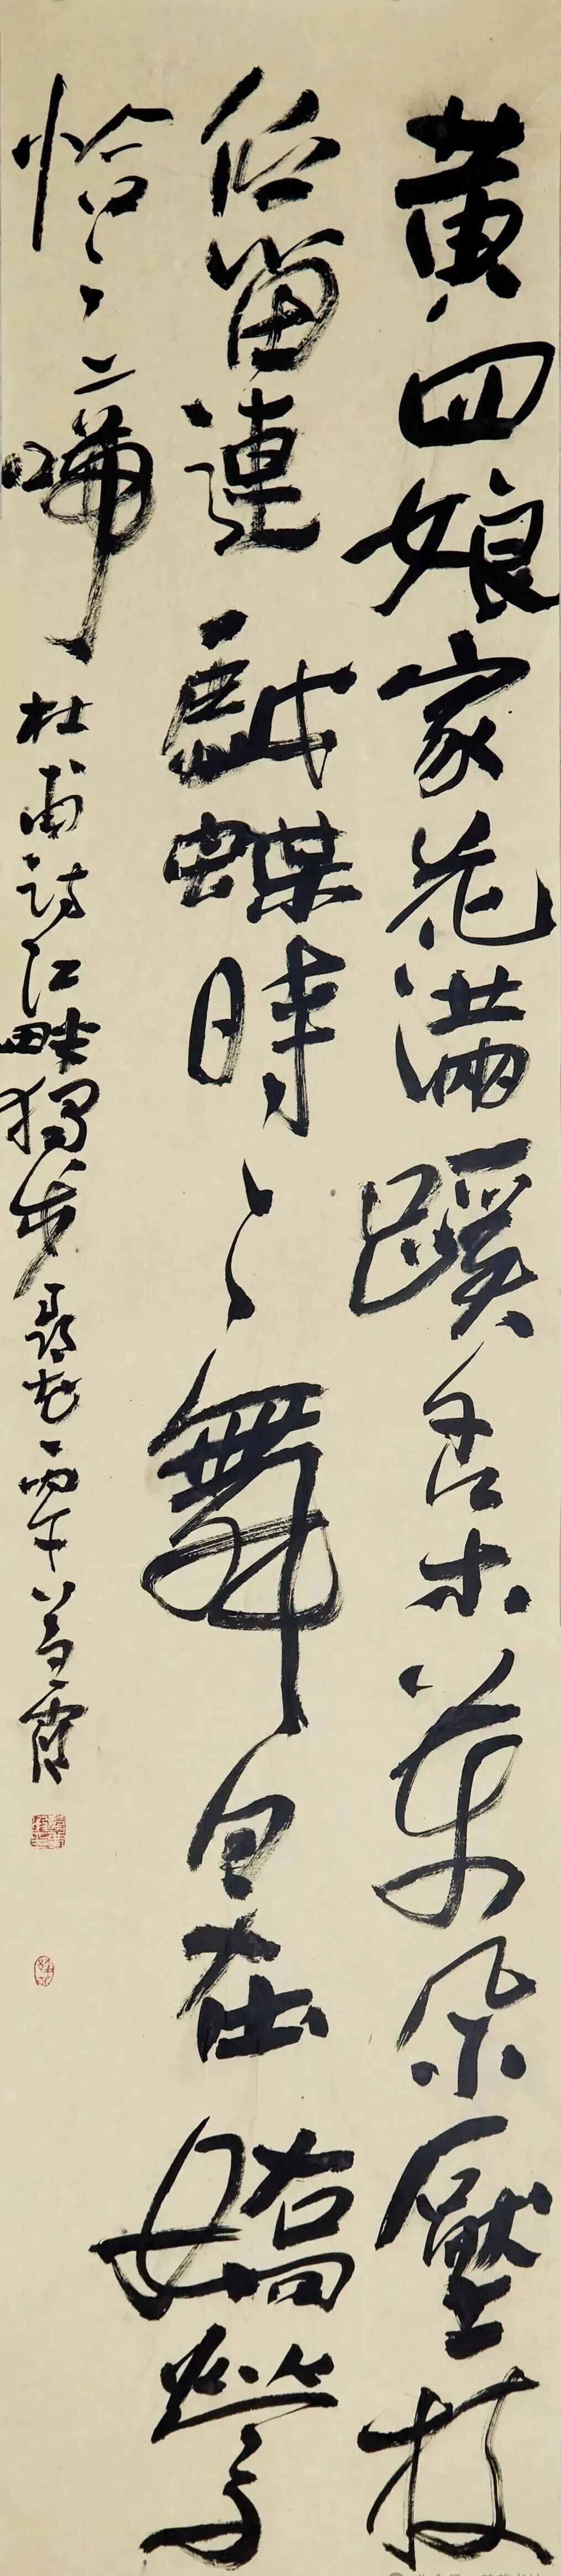 黄四娘家花滿蹊千朵萬朵壓枝
低留連戲蝶時々舞自在嬌鶯
恰々啼
杜甫詩江畔獨步尋花丙午